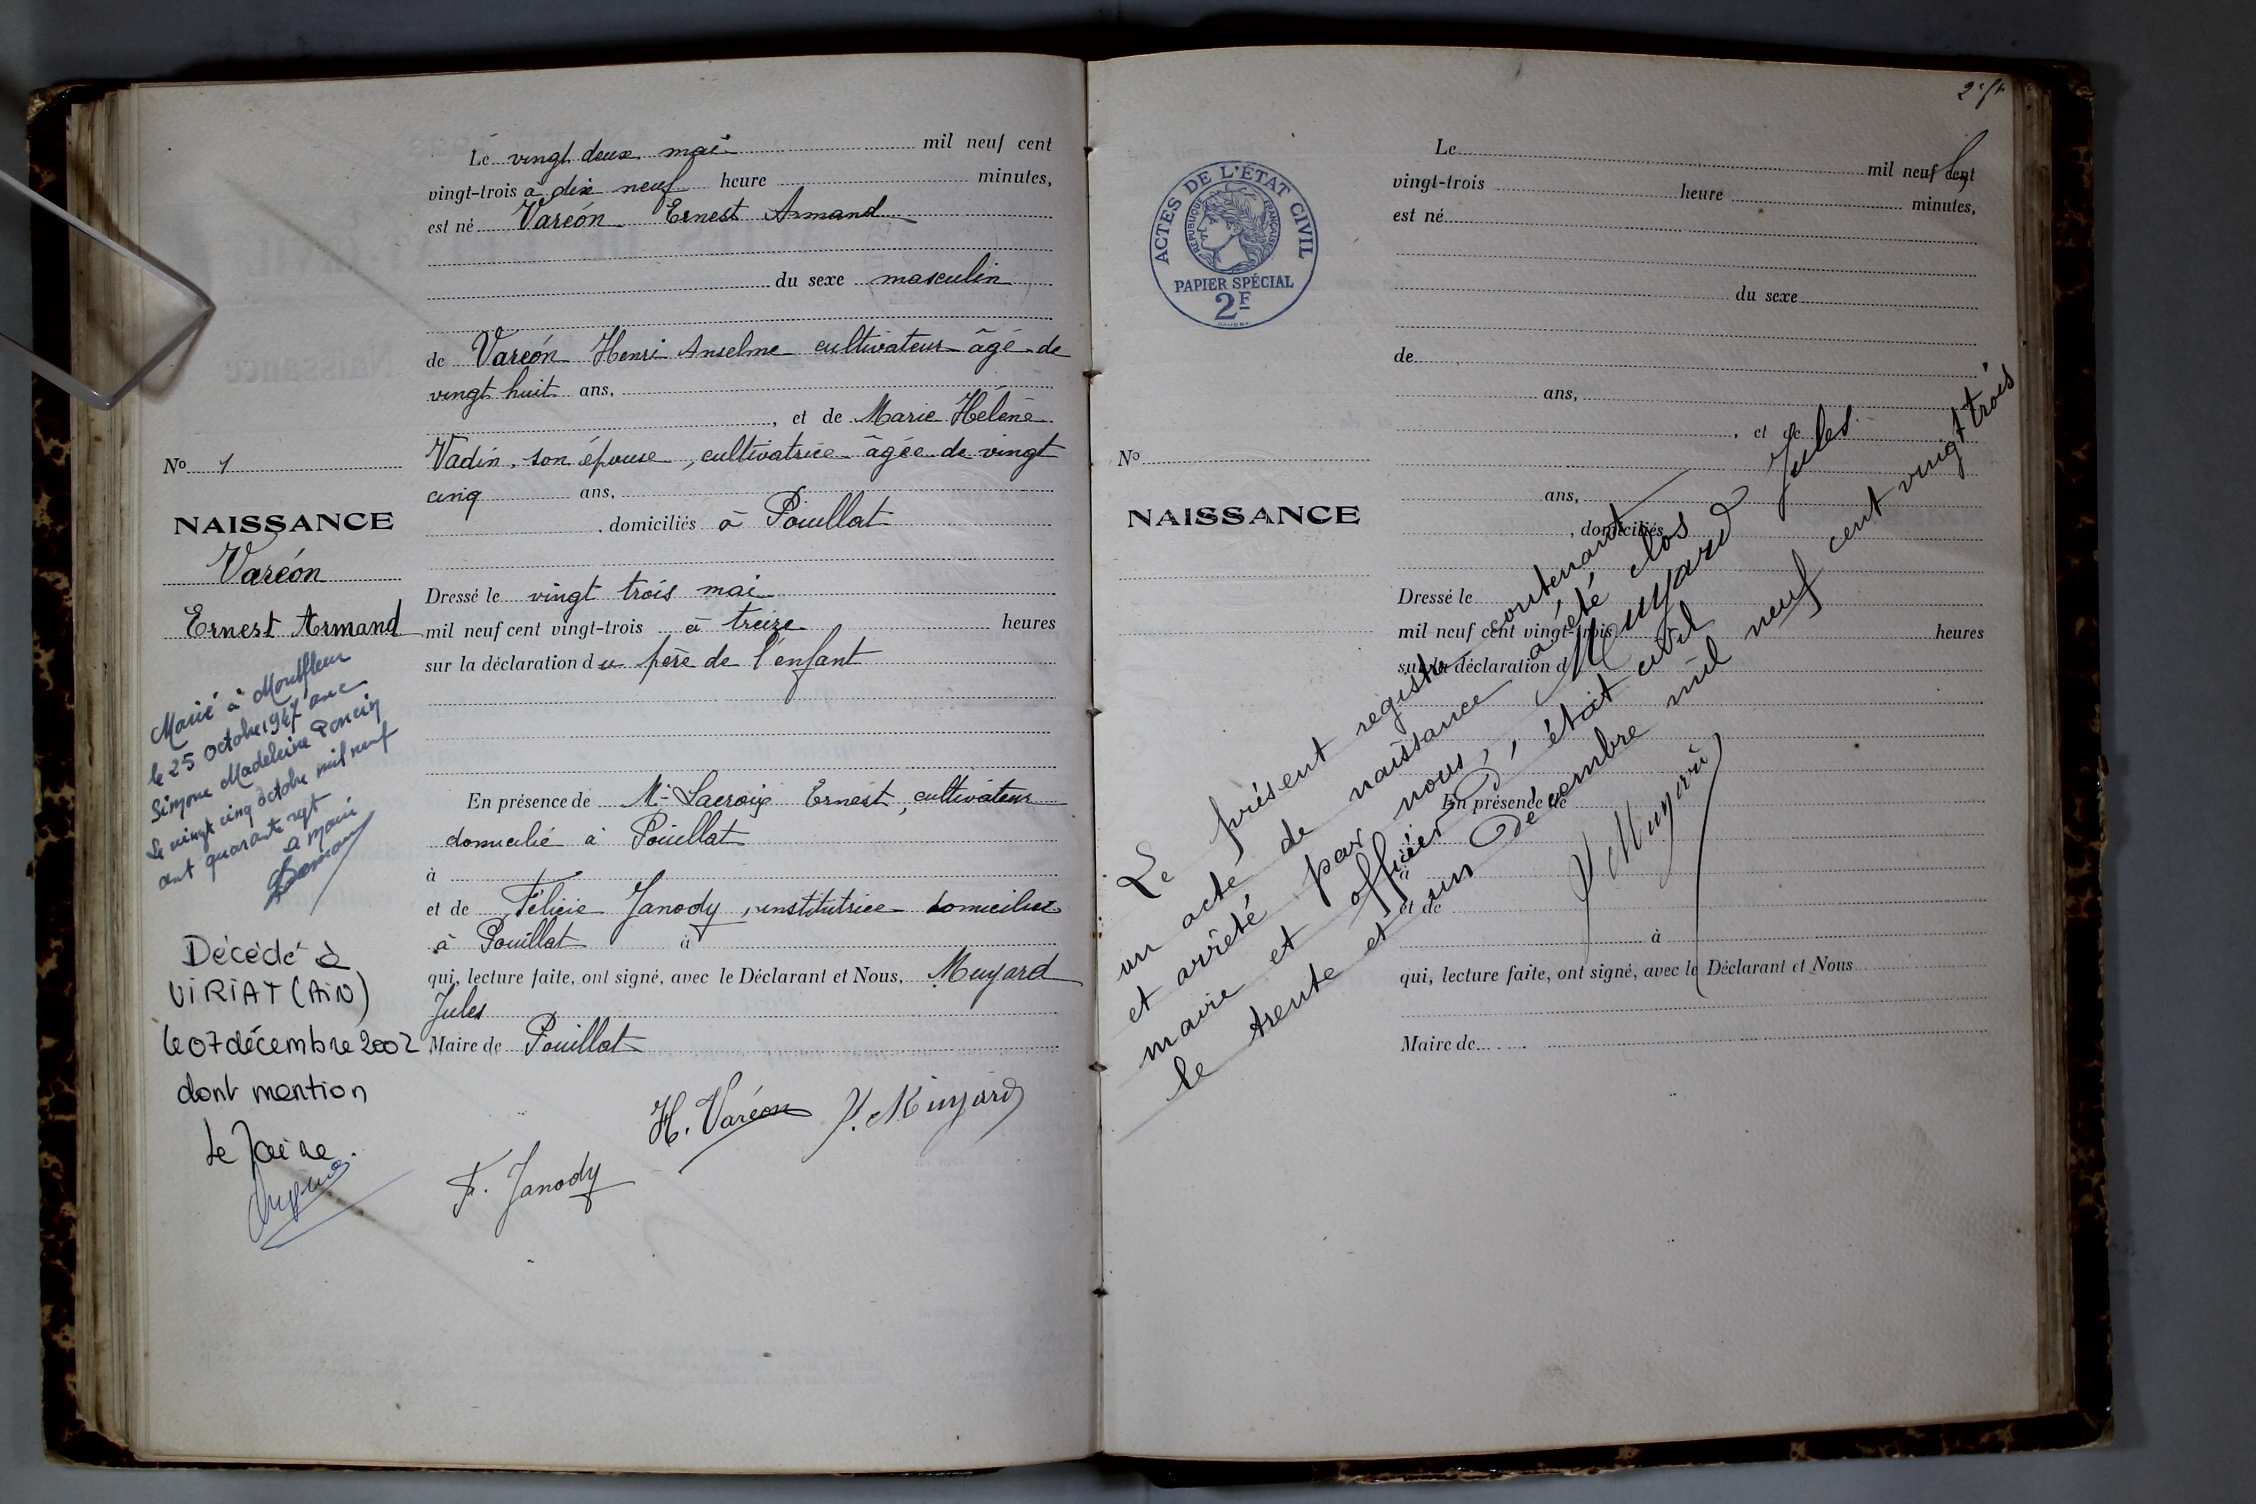 Le vingt deux mai mil neuf cent
vingt-trois à dix neuf heure minutes,
est né Varéon Ernest Armand
du sexe masculin
de Varéon Henri Anselme cultivateur âgé de
vingt huit ans,
, et de Marie Hélène
Vadin, son épouse, cultivatrice âgée de vingt
cinq ans,
, domiciliés à Pouillat
Dressé le vingt trois mai
mil neuf cent vingt-trois à treize heures
sur la déclaration du père de l'enfant
En présence de Mr Lacroix Ernest, cultivateur
domicilié à Pouillat
à
et de Félicie Janody, institutrice domiciliée
à Pouillat à
qui, lecture faite, ont signé, avec le Déclarant et Nous, Muyard
Jules
Maire de Pouillat
H. Varéon J. Muyard
F. Janody
No 1
NAISSANCE
Varéon
Ernest Armand
Marié à Montfleur
le 25 Octobre 1947 avec
Simone Madeleine Poncin
Le vingt cinq octobre mil neuf
cent quarante sept
Le Maire
Décédé à
VIRIAT (AIN)
le 07 décembre 2002
dont mention
Le Maire.
Le mil neuf cent
vingt-trois heure minutes,
est né
du sexe
de
ans,
, et de
ans,
, domiciliés
Dressé le
mil neuf cent vingt-trois heures
sur la déclaration d
En présence de
à
et de
à
qui, lecture faite, ont signé, avec le Déclarant et Nous
Maire de
ACTES DE L'ÉTAT CIVIL
RÉPUBLIQUE FRANÇAISE
PAPIER SPÉCIAL
2F
No
NAISSANCE
Le présent registre contenant
un acte de naissance a été clos
et arrêté par nous, Muyard Jules
maire et officier d'état civil
le trente et un décembre mil neuf cent vingt trois
J. Muyard